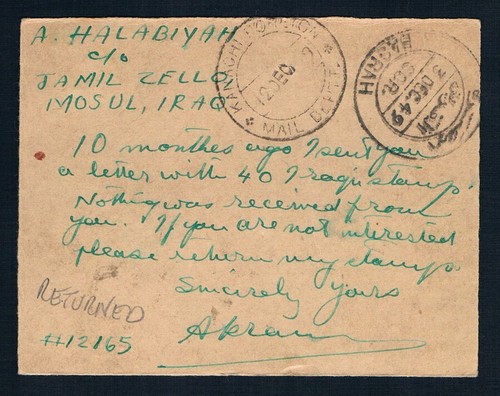 A. HALABIYAH
c/o
JAMIL ZELLO
MOSUL, IRAQ
MAIL
BASRAH
3 DEC 49
10 monthes ago I sent you
a letter with 40 Iraqi stamp.
Nothing was received from
you. If you are not interested
please return my stamps.
Sincerely yours
Akram
RETURNED
#12165